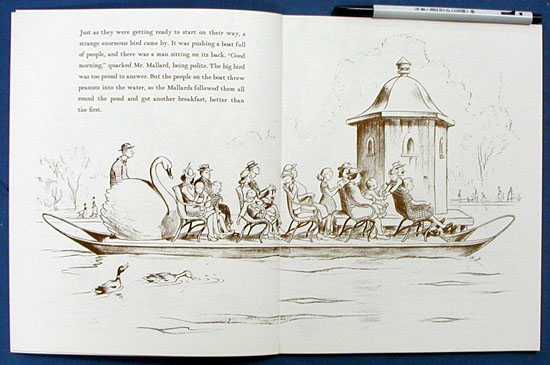 Just as they were getting ready to start on their way, a
strange enormous bird came by. It was pushing a boat full
of people, and there was a man sitting on its back. “Good
morning,” quacked Mr. Mallard, being polite. The big bird
was too proud to answer. But the people on the boat threw
peanuts into the water, so the Mallards followed them all
round the pond and got another breakfast, better than
the first.